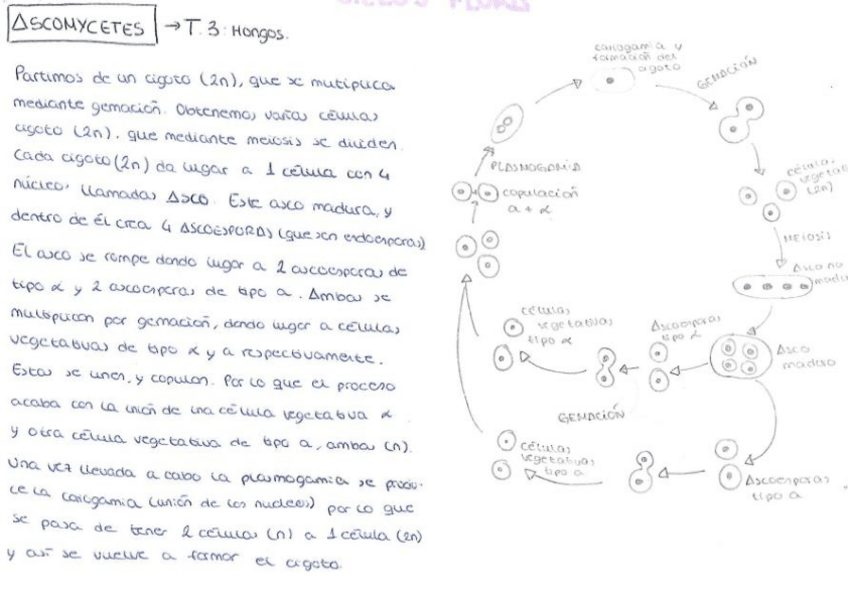 CICLOS FLORA
ASCOMYCETES → T.3: Hongos.
Partimos de un cigoto (2n), que se mutiplica
mediante gemación. Obtenemos varias células
cigoto (2n), que mediante meiosis se dividen.
Cada cigoto (2n) da lugar a 1 célula con 4
núcleos llamadas Asco. Este asco madura, y
dentro de él crea 4 ASCOESPORAS (que son endoesporas)
El asco se rompe dando lugar a 2 ascoesporas de
tipo α y 2 ascoesporas de tipo a. Ambas se
multiplican por gemación, dando lugar a células
vegetativas de tipo α y a respectivamente.
Estas se unen, y copulan. Por lo que el proceso
acaba con la unión de una célula vegetativa α
y otra célula vegetativa de tipo a, ambas (n).
Una vez llevada a cabo la plasmogamia se produ-
ce la cariogamia (unión de los nucleos) por lo que
se pasa de tener 2 células (n) a 1 célula (2n)
y así se vuelve a formar el cigoto.
cariogamia y
formación del
cigoto
GEMACIÓN
PLASMOGAMIA
copulación
a + α
células
vegetat
(2n)
MEIOSIS
Asco no
madu
Asco
maduro
Ascoesporas
tipo α
células
vegetativas
tipo α
GEMACIÓN
células
vegetativas
tipo a
Ascoesporas
tipo a